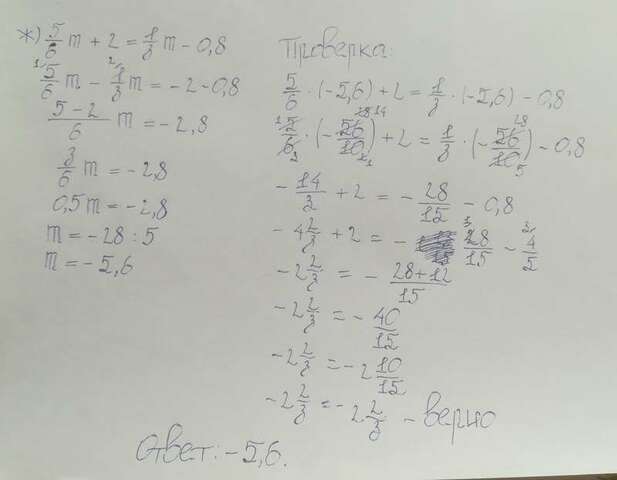 ж) 5/6 m + 2 = 1/3 m - 0,8
1\ 5/6 m - 2\ 1/3 m = -2 - 0,8
(5 - 2)/6 m = -2,8
3/6 m = -2,8
0,5 m = -2,8
m = -28 : 5
m = -5,6
Проверка:
5/6 · (-5,6) + 2 = 1/3 · (-5,6) - 0,8
5/6 · (-56/10) + 2 = 1/3 · (-56/10) - 0,8
- 14/3 + 2 = - 28/15 - 0,8
- 4 2/3 + 2 = - 28/15 - 4/5
- 2 2/3 = - (28 + 12)/15
- 2 2/3 = - 40/15
- 2 2/3 = - 2 10/15
- 2 2/3 = - 2 2/3 - верно
Ответ: -5,6.